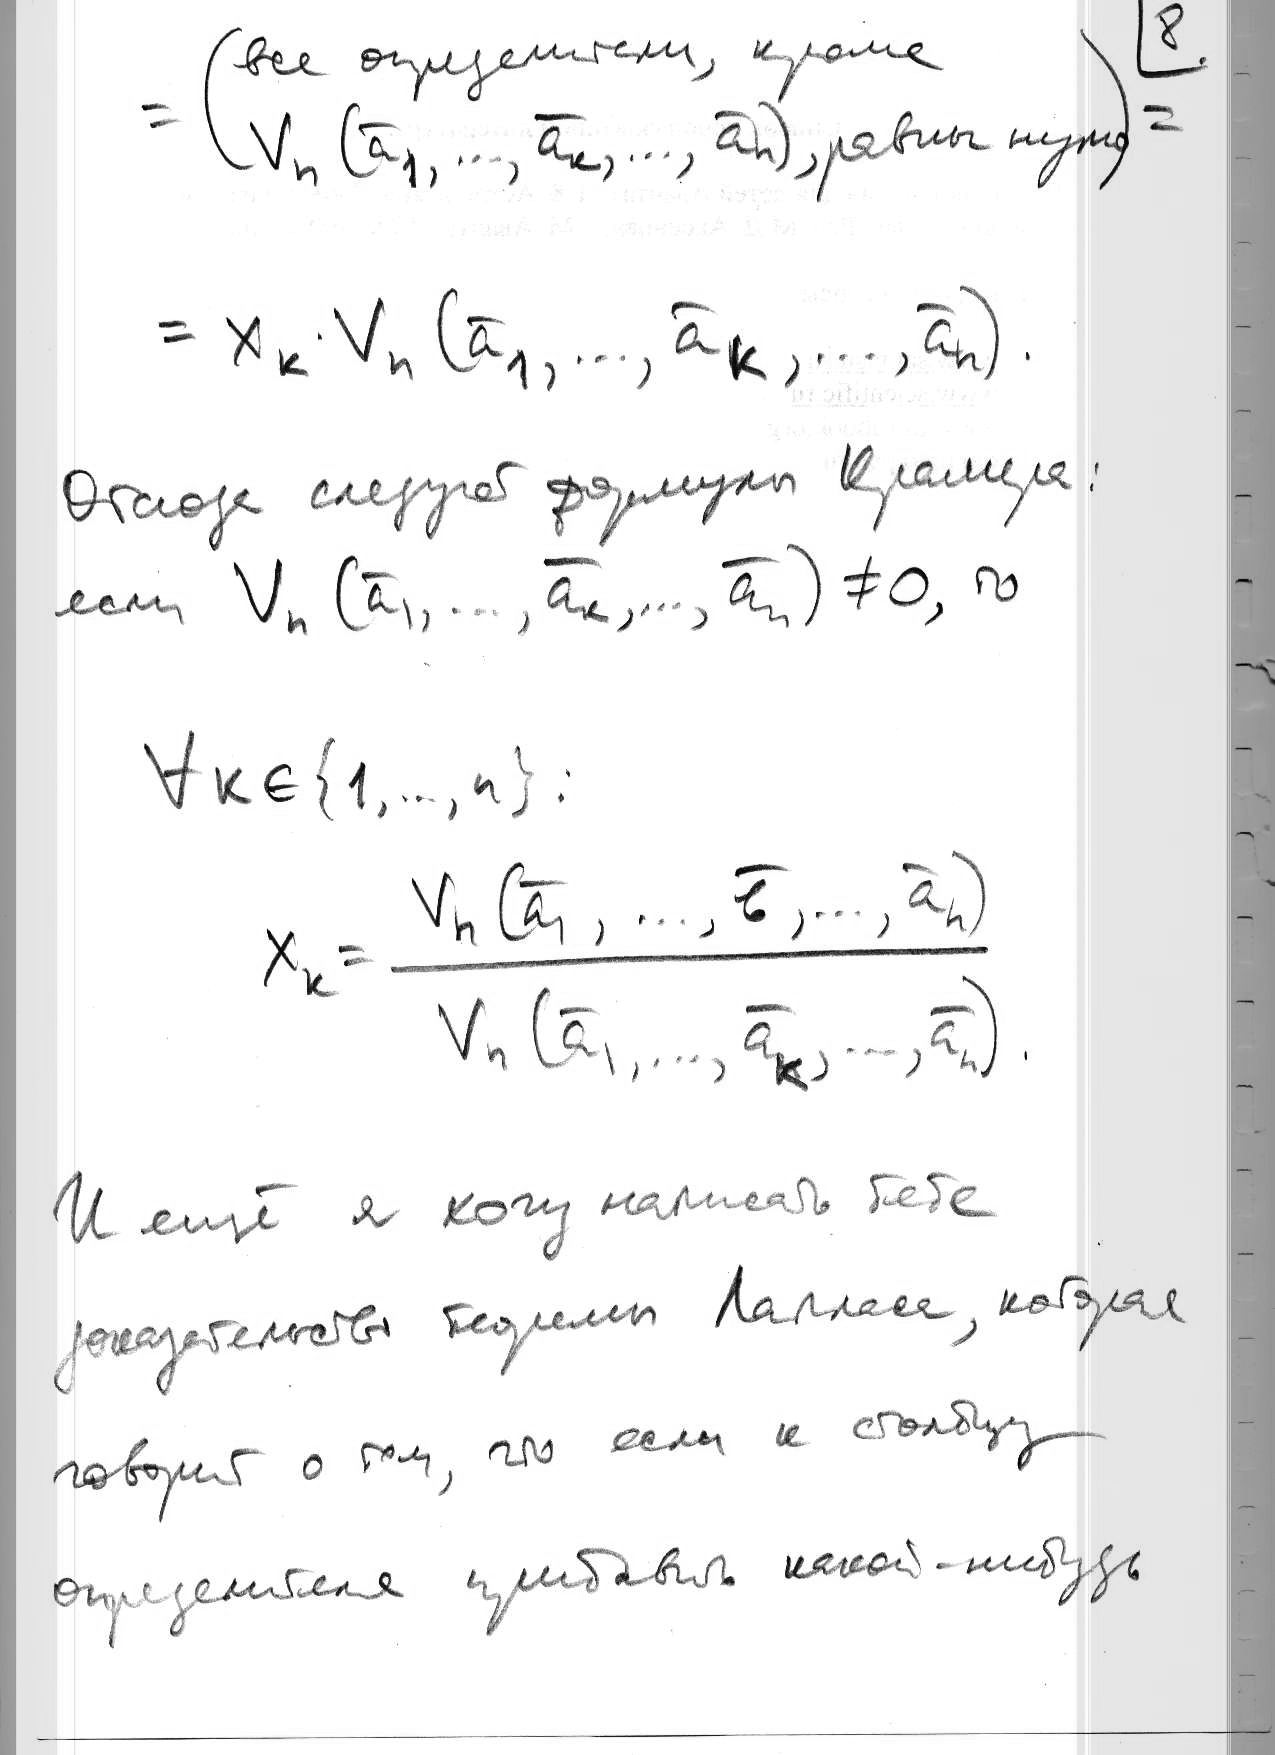 8.
= (все определители, кроме
V_n(ā_1, ..., ā_k, ..., ā_n), равны нулю) =
= x_k · V_n(ā_1, ..., ā_k, ..., ā_n).
Отсюда следует формулы Крамера:
если V_n(ā_1, ..., ā_k, ..., ā_n) ≠ 0, то
∀k∈{1, ..., n}:
x_k = V_n(ā_1, ..., b̄, ..., ā_n)
V_n(ā_1, ..., ā_k, ..., ā_n).
И ещё я хочу написать тебе
доказательство теоремы Лапласа, которая
говорит о том, что если к столбцу
определителя прибавить какой-нибудь